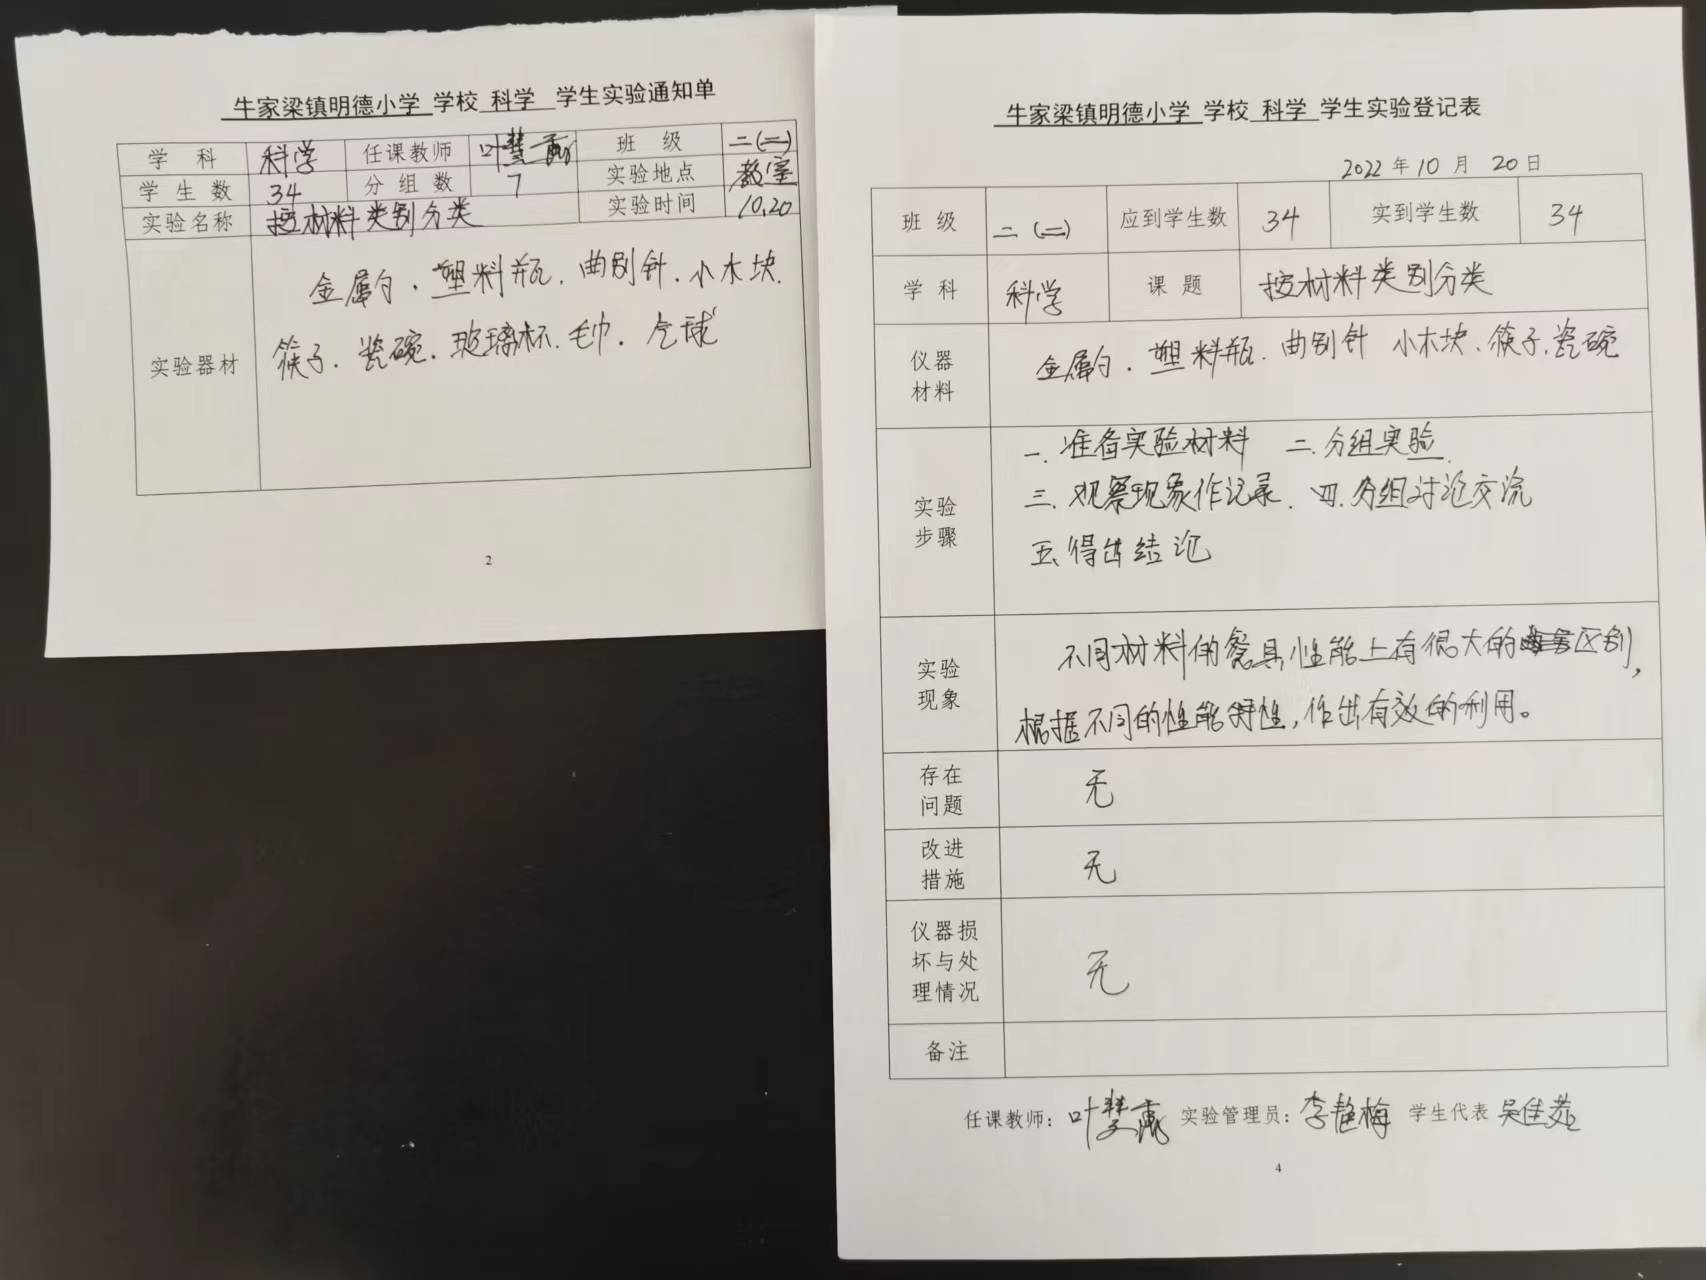 牛家梁镇明德小学 学校 科学 学生实验通知单
学科 科学 任课教师 叶 班级 二(二)
学生数 34 分组数 7 实验地点 教室
实验名称 按材料类别分类 实验时间 10.20
实验器材
金属勺、塑料瓶、曲别针、小木块、
筷子、瓷碗、玻璃杯、毛巾、气球
2
牛家梁镇明德小学 学校 科学 学生实验登记表
2022年10月20日
班级 二(二) 应到学生数 34 实到学生数 34
学科 科学 课题 按材料类别分类
仪器
材料
金属勺、塑料瓶、曲别针 小木块、筷子、瓷碗
实验
步骤
一、准备实验材料 二、分组实验
三、观察现象作记录、四、分组讨论交流
五、得出结论
实验
现象
不同材料的餐具,性能上有很大的区别,
根据不同的性能特性,作出有效的利用。
存在
问题
无
改进
措施
无
仪器损
坏与处
理情况
无
备注
任课教师: 叶 实验管理员: 李艳梅 学生代表 吴佳
4